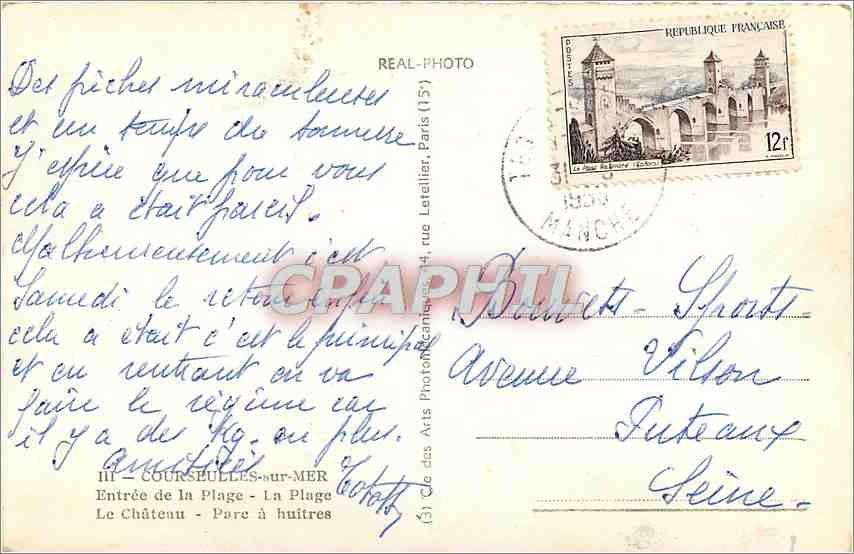 REAL-PHOTO
Des pêches miraculeuses
et un temps du tonnerre
J'espère que pour vous
cela a était pareil.
Malheureusement c'est
Samedi le retour enfin
cela a était c'est le principal
et en rentrant on va
faire le régime car
il y a des Kg. en plus.
Amitiés
III - COURSEULLES-sur-MER
Entrée de la Plage - La Plage
Le Château - Parc à huîtres
(3) Cie des Arts Photomécaniques 44, rue Letellier, Paris (15e)
REPUBLIQUE FRANÇAISE
POSTES
12f
MANCHE
CPAPHIL
Bouvets - Sports -
Avenue Vilson
Puteaux
Seine.